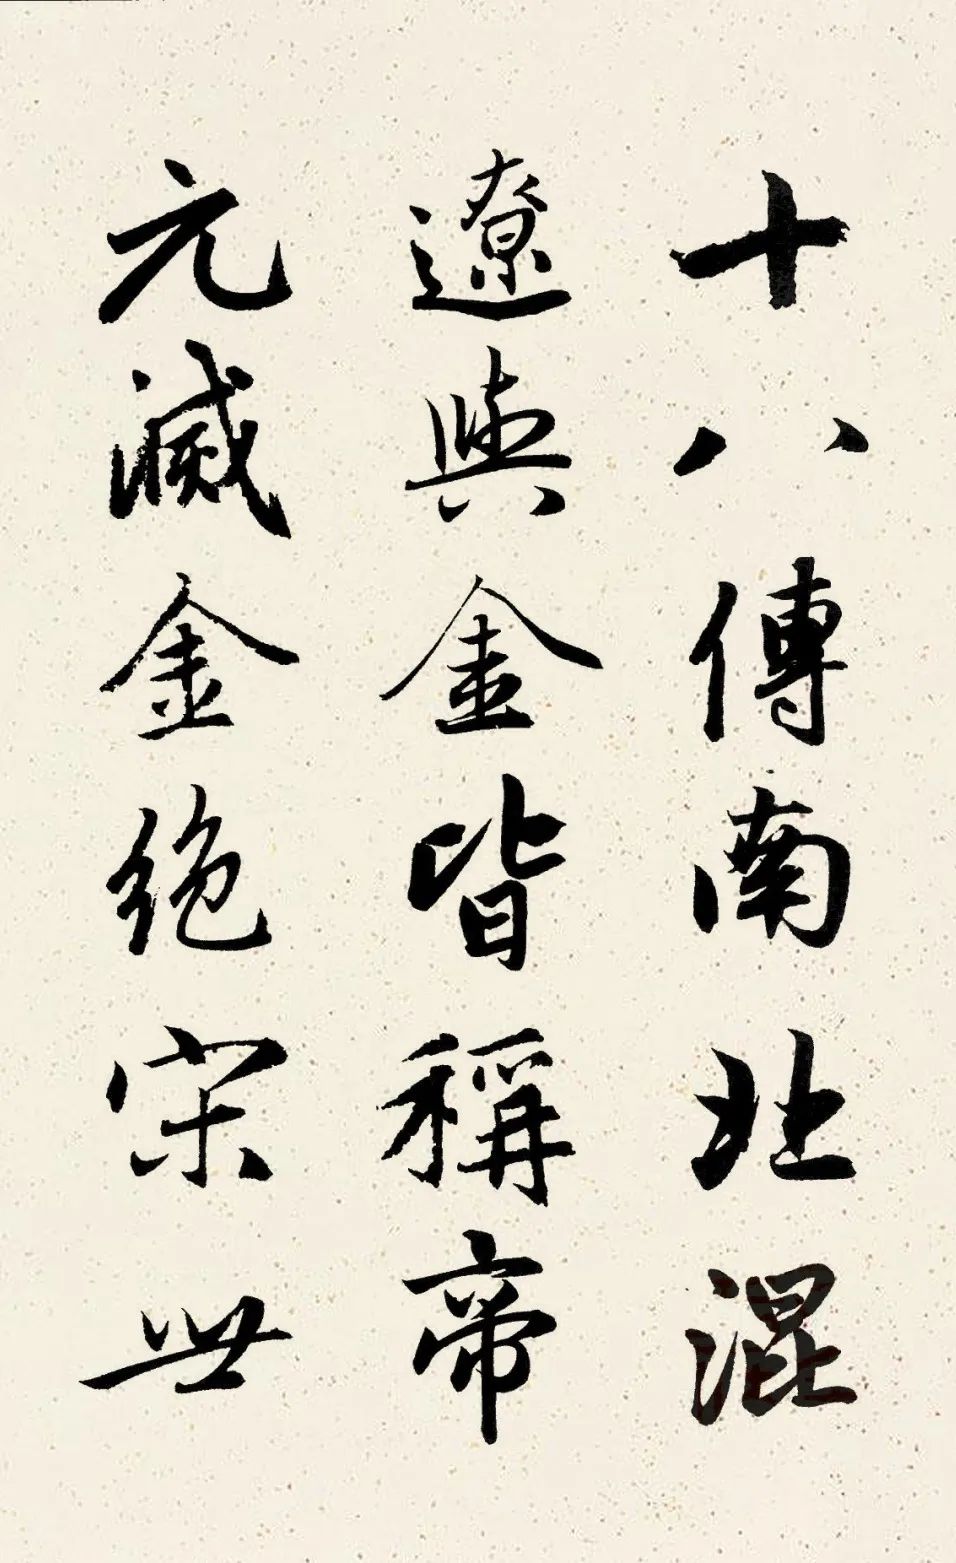 十八傳南北混
遼與金皆稱帝
元滅金絕宋世